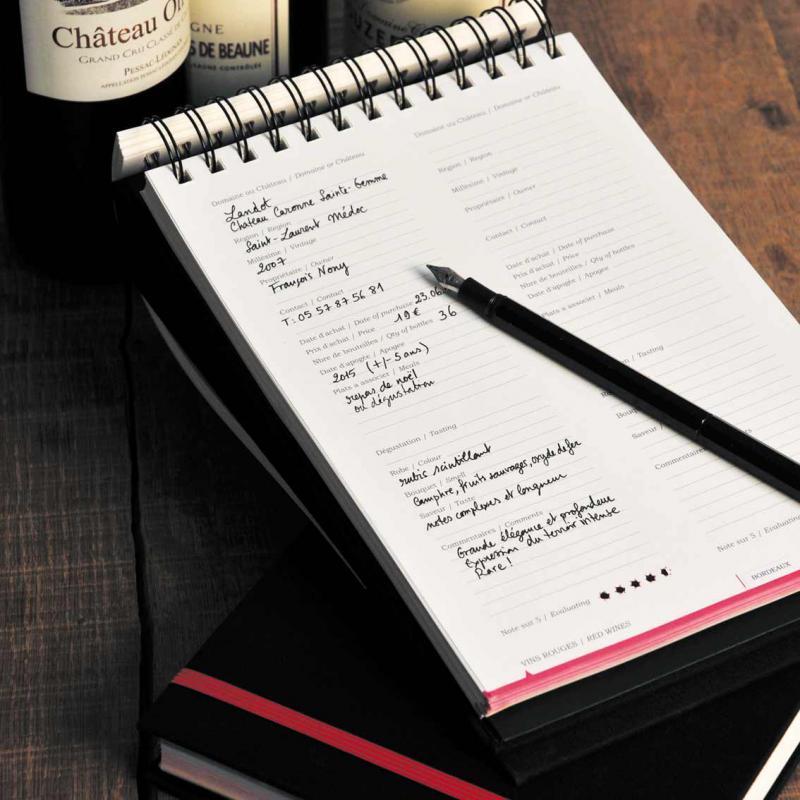 Château
GRAND CRU CLASSÉ DE
PESSAC-LÉOGNAN
GNE
S DE BEAUNE
Domaine ou Château / Domaine or Château
Landot
Chateau Caronne Sainte-Gemme
Région / Region
Saint-Laurent Médoc
Millésime / Vintage
2007
Propriétaire / Owner
François Nony
Contact / Contact
T: 05 57 87 56 81
Date d'achat / Date of purchase 23.06
Prix d'achat / Price 19 €
Nbre de bouteilles / Qty of bottles 36
Date d'apogée / Apogee
2015 (+/- 5 ans)
Plats à associer / Meals
repas de noël
ou dégustation
Dégustation / Tasting
Robe / Colour
rubis scintillant
Bouquet / Smell
Camphre, fruits sauvages, oxyde de fer
Saveur / Taste
notes complexes et longueur
Commentaires / Comments
Grande élégance et profondeur
Expression du terroir intense
Rare!
Note sur 5 / Evaluating
VINS ROUGES / RED WINES
Domaine ou Château / Domaine or Château
Région / Region
Millésime / Vintage
Propriétaire / Owner
Contact / Contact
Date d'achat / Date of purchase
Prix d'achat / Price
Nbre de bouteilles / Qty of bottles
Date d'apogée / Apogee
Plats à associer / Meals
/ Tasting
Saveur /
Commentaires
Note sur 5 / Evaluating
BORDEAUX